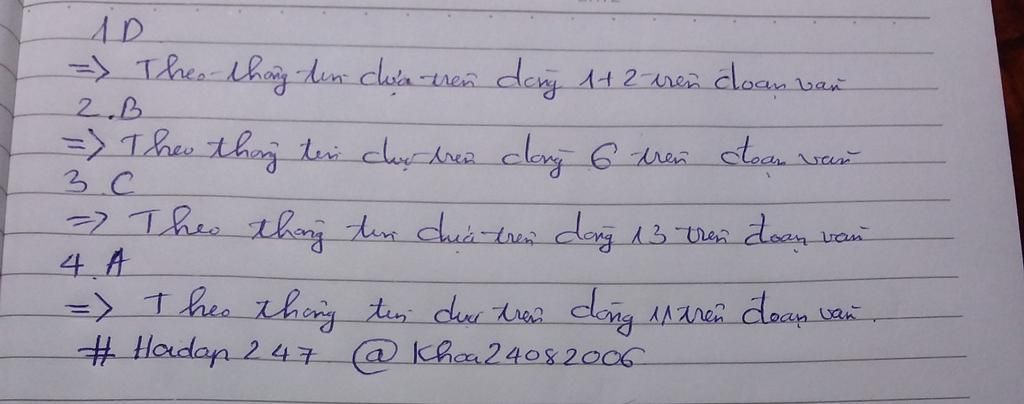 1D
=> Theo thông tin dựa trên dòng 1+2 trên đoạn văn
2.B
=> Theo thông tin dựa trên dòng 6 trên đoạn văn
3 C
=> Theo thông tin dựa trên dòng 13 trên đoạn văn
4.A
=> Theo thông tin dựa trên dòng 11 trên đoạn văn.
# Hoidap 247 @Khoa24082006